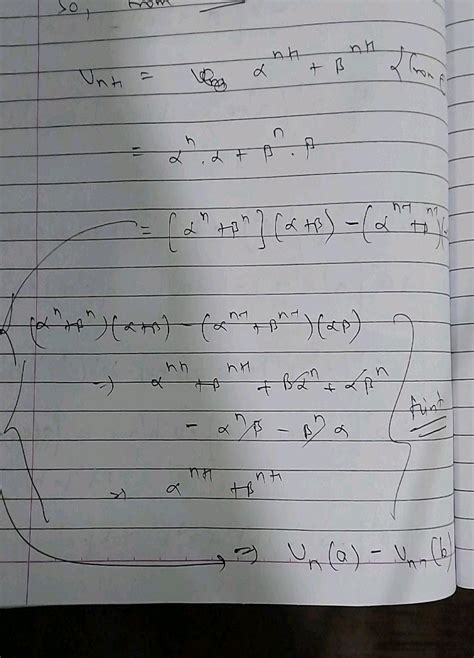 So, from
U_{n+1} = α^{n+1} + β^{n+1} {from
= α^n . α + β^n . β
= [α^n + β^n] (α+β) - (α^{n-1} + β^{n-1})(
(α^n + β^n)(α+β) - (α^{n-1} + β^{n-1})(αβ)
⇒ α^{n+1} + β^{n+1} + βα^n + αβ^n
- α^n β - β^n α
⇒ α^{n+1} + β^{n+1}
⇒ U_n (a) - U_{n-1} (b)